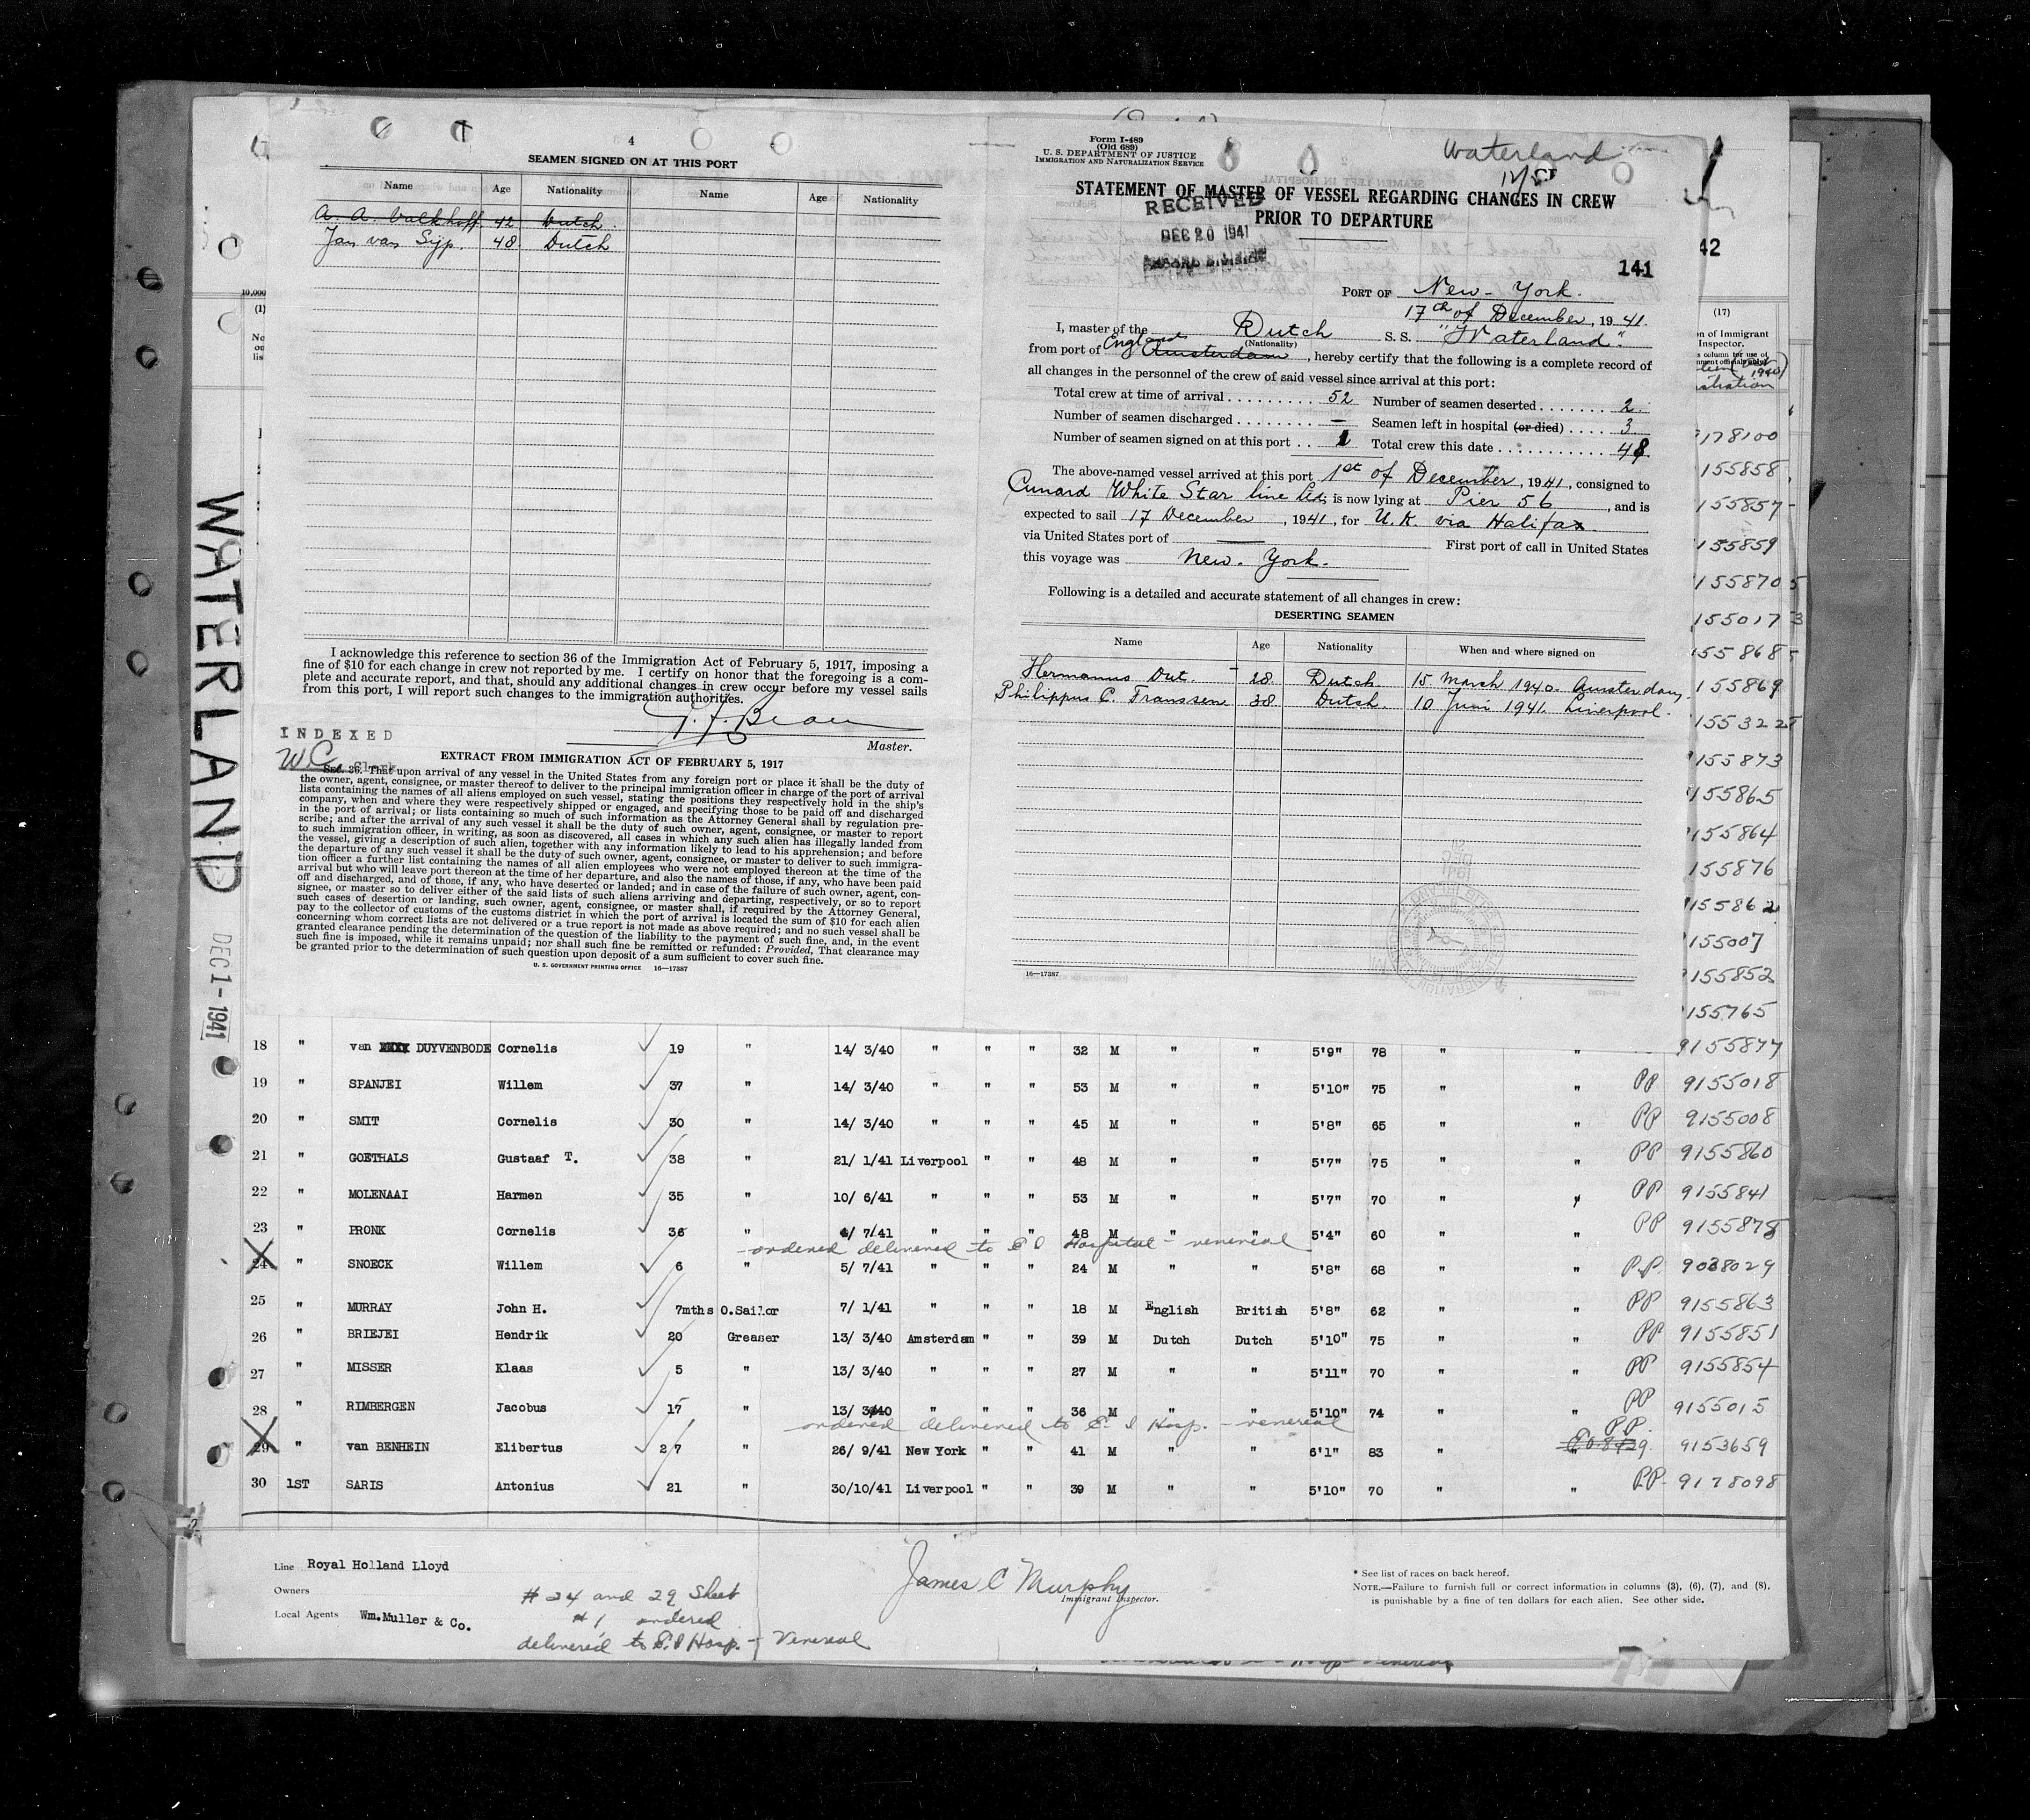 4
SEAMEN SIGNED ON AT THIS PORT
Name Age Nationality Name Age Nationality
A. A. Valkhoff. 42 Dutch.
Jan van Sijp. 48 Dutch
I acknowledge this reference to section 36 of the Immigration Act of February 5, 1917, imposing a
fine of $10 for each change in crew not reported by me. I certify on honor that the foregoing is a com-
plete and accurate report, and that, should any additional changes in crew occur before my vessel sails
from this port, I will report such changes to the immigration authorities.
Master.
INDEXED
W.C. Clerk
EXTRACT FROM IMMIGRATION ACT OF FEBRUARY 5, 1917
SEC. 36. That upon arrival of any vessel in the United States from any foreign port or place it shall be the duty of
the owner, agent, consignee, or master thereof to deliver to the principal immigration officer in charge of the port of arrival
lists containing the names of all aliens employed on such vessel, stating the positions they respectively hold in the ship's
company, when and where they were respectively shipped or engaged, and specifying those to be paid off and discharged
in the port of arrival; or lists containing so much of such information as the Attorney General shall by regulation pre-
scribe; and after the arrival of any such vessel it shall be the duty of such owner, agent, consignee, or master to report
to such immigration officer, in writing, as soon as discovered, all cases in which any such alien has illegally landed from
the vessel, giving a description of such alien, together with any information likely to lead to his apprehension; and before
the departure of any such vessel it shall be the duty of such owner, agent, consignee, or master to deliver to such immigra-
tion officer a further list containing the names of all alien employees who were not employed thereon at the time of the
arrival but who will leave port thereon at the time of her departure, and also the names of those, if any, who have been paid
off and discharged, and of those, if any, who have deserted or landed; and in case of the failure of such owner, agent, con-
signee, or master so to deliver either of the said lists of such aliens arriving and departing, respectively, or so to report
such cases of desertion or landing, such owner, agent, consignee, or master, shall, if required by the Attorney General,
pay to the collector of customs of the customs district in which the port of arrival is located the sum of $10 for each alien
concerning whom correct lists are not delivered or a true report is not made as above required; and no such vessel shall be
granted clearance pending the determination of the question of the liability to the payment of such fine, and, in the event
such fine is imposed, while it remains unpaid; nor shall such fine be remitted or refunded: Provided, That clearance may
be granted prior to the determination of such question upon deposit of a sum sufficient to cover such fine.
U. S. GOVERNMENT PRINTING OFFICE 16—17387
Form I-489
(Old 689)
U. S. DEPARTMENT OF JUSTICE
IMMIGRATION AND NATURALIZATION SERVICE
Waterland
STATEMENT OF MASTER OF VESSEL REGARDING CHANGES IN CREW
PRIOR TO DEPARTURE
RECEIVED
DEC 20 1941
141
PORT OF New-York.
17th of December, 1941.
I, master of the Dutch S. S. "Waterland".
(Nationality)
from port of England Amsterdam, hereby certify that the following is a complete record of
all changes in the personnel of the crew of said vessel since arrival at this port:
Total crew at time of arrival 52 Number of seamen deserted 2.
Number of seamen discharged — Seamen left in hospital (or died) 3
Number of seamen signed on at this port 1 Total crew this date 48
The above-named vessel arrived at this port 1st of December, 1941, consigned to
Cunard White Star line Ltd; is now lying at Pier 56, and is
expected to sail 17 December, 1941, for U.K. via Halifax
via United States port of — First port of call in United States
this voyage was New-York.
Following is a detailed and accurate statement of all changes in crew:
DESERTING SEAMEN
Name Age Nationality When and where signed on
Hermanus Dut. 28. Dutch. 15 March 1940. Amsterdam,
Philippus C. Franssen 38. Dutch. 10 Juni 1941. Liverpool.
16—17387
42
(17)
on of Immigrant
Inspector.
178100
155858
155857
155859
155870
155017
155868
155869
155322
155873
155865
155864
155876
155862
155007
155852
155765
WATERLAND DEC 1-1941
10,000
(1)
18 " van DUYVENBODE Cornelis 19 " 14/ 3/40 " " " 32 M " " 5'9" 78 " " 9155877
19 " SPANJEI Willem 37 " 14/ 3/40 " " " 53 M " " 5'10" 75 " " PP 9155018
20 " SMIT Cornelis 30 " 14/ 3/40 " " " 45 M " " 5'8" 65 " " PP 9155008
21 " GOETHALS Gustaaf T. 38 " 21/ 1/41 Liverpool " " 48 M " " 5'7" 75 " " PP 9155860
22 " MOLENAAI Harmen 35 " 10/ 6/41 " " " 53 M " " 5'7" 70 " " PP 9155841
23 " PRONK Cornelis 36 " 4/ 7/41 " " " 48 M " " 5'4" 60 " " PP 9155878
ordered delivered to E I Hospital - venereal
24 " SNOECK Willem 6 " 5/ 7/41 " " " 24 M " " 5'8" 68 " " P.P. 9038029
25 " MURRAY John H. 7mths O.Sailor 7/ 1/41 " " " 18 M English British 5'8" 62 " " PP 9155863
26 " BRIEJEI Hendrik 20 Greaser 13/ 3/40 Amsterdam " " 39 M Dutch Dutch 5'10" 75 " " PP 9155851
27 " MISSER Klaas 5 " 13/ 3/40 " " " 27 M " " 5'11" 70 " " PP 9155854
28 " RIMBERGEN Jacobus 17 " 13/ 3/40 " " " 36 M " " 5'10" 74 " " PP 9155015
ordered delivered to E. I Hosp. - venereal
29 " van BENHEIN Elibertus 27 " 26/ 9/41 New York " " 41 M " " 6'1" 83 " " PP. 9153659
30 1ST SARIS Antonius 21 " 30/10/41 Liverpool " " 39 M " " 5'10" 70 " " PP 9178098
Line Royal Holland Lloyd
Owners
Local Agents Wm.Muller & Co.
# 24 and 29 Sheet
# 1 ordered
delivered to E.I Hosp. - Venereal
James C Murphy
Immigrant Inspector.
* See list of races on back hereof.
NOTE.—Failure to furnish full or correct information in columns (3), (6), (7), and (8),
is punishable by a fine of ten dollars for each alien. See other side.